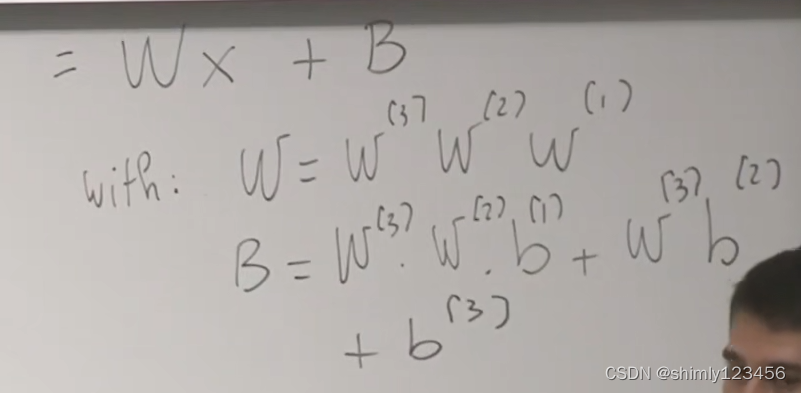 = Wx + B
with: W = W^(3) W^(2) W^(1)
B = W^(3) . W^(2) . b^(1) + W^(3) b^(2)
+ b^(3)
CSDN @shimly123456